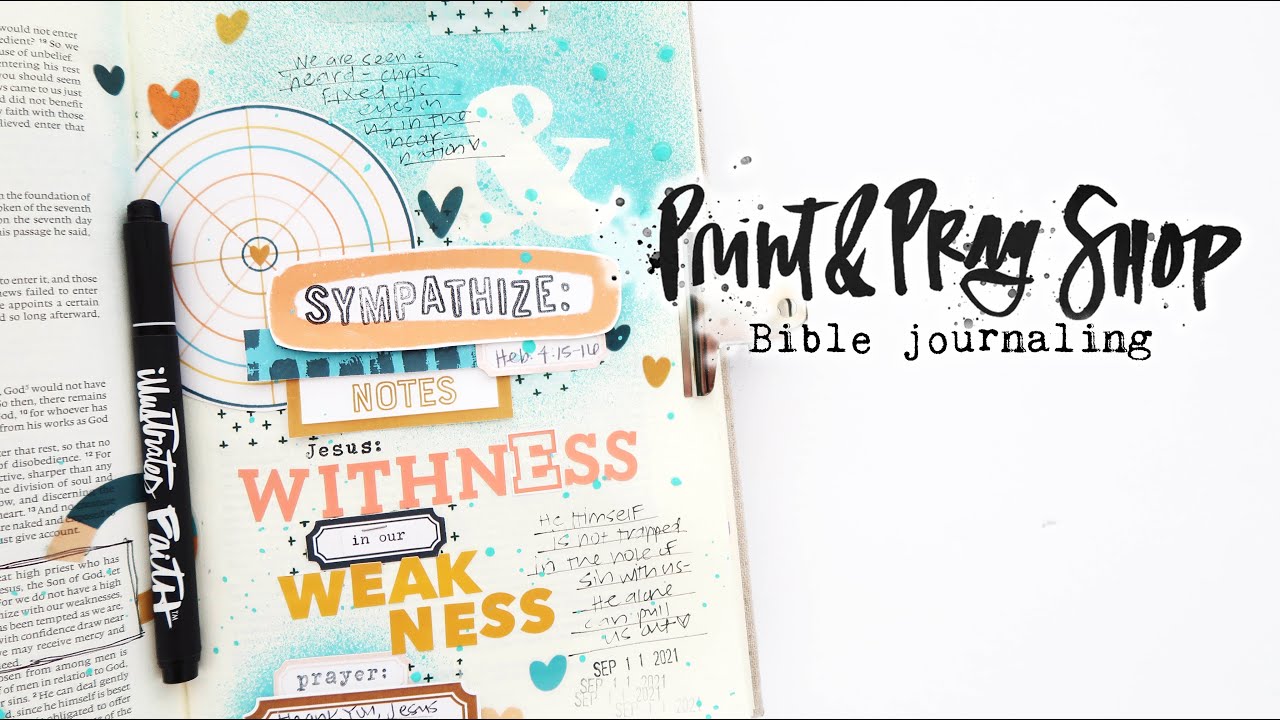 would not enter
edient? ¹⁹ So we
use of unbelief
entering his rest
you should seem
ws came to us just
d did not benefit
y faith with those
lieved enter that
the foundation of
oken of the seventh
on the seventh day
his passage he said,
to enter it, and those
news failed to enter
e appoints a certain
d so long afterward,
God² would not have
So then, there remains
God, ¹⁰ for whoever has
from his works as God
ter that rest, so that no
of disobedience. ¹² For
active, sharper than any
the division of soul and
row, and discerning the
heart. ¹³ And no
are naked and
must give account.
eat high priest who has
s, the Son of God, let
For we do not have a high
thize with our weaknesses,
as been tempted as we are,
with confidence draw near
we may receive mercy and
need.
sen from among men is
of men in relation to God,
sins. ² He can deal gently
since he himself is beset
obligated to offer
We are seen &
heard - Christ
fixed His
eyes in
us in the
incar-
nation ♡
&
SYMPATHIZE:
Heb. 4:15-16
NOTES
Jesus:
WITHNESS
in our
WEAK
NESS
He Himself
is not trapped
in the hole of
sin with us-
He alone
can pull
us out ♡
SEP 11 2021
SEP 11 2021
SEP 11 2021
prayer:
Thank You, Jesus
illustrated Faith™
Print & Pray Shop
Bible journaling